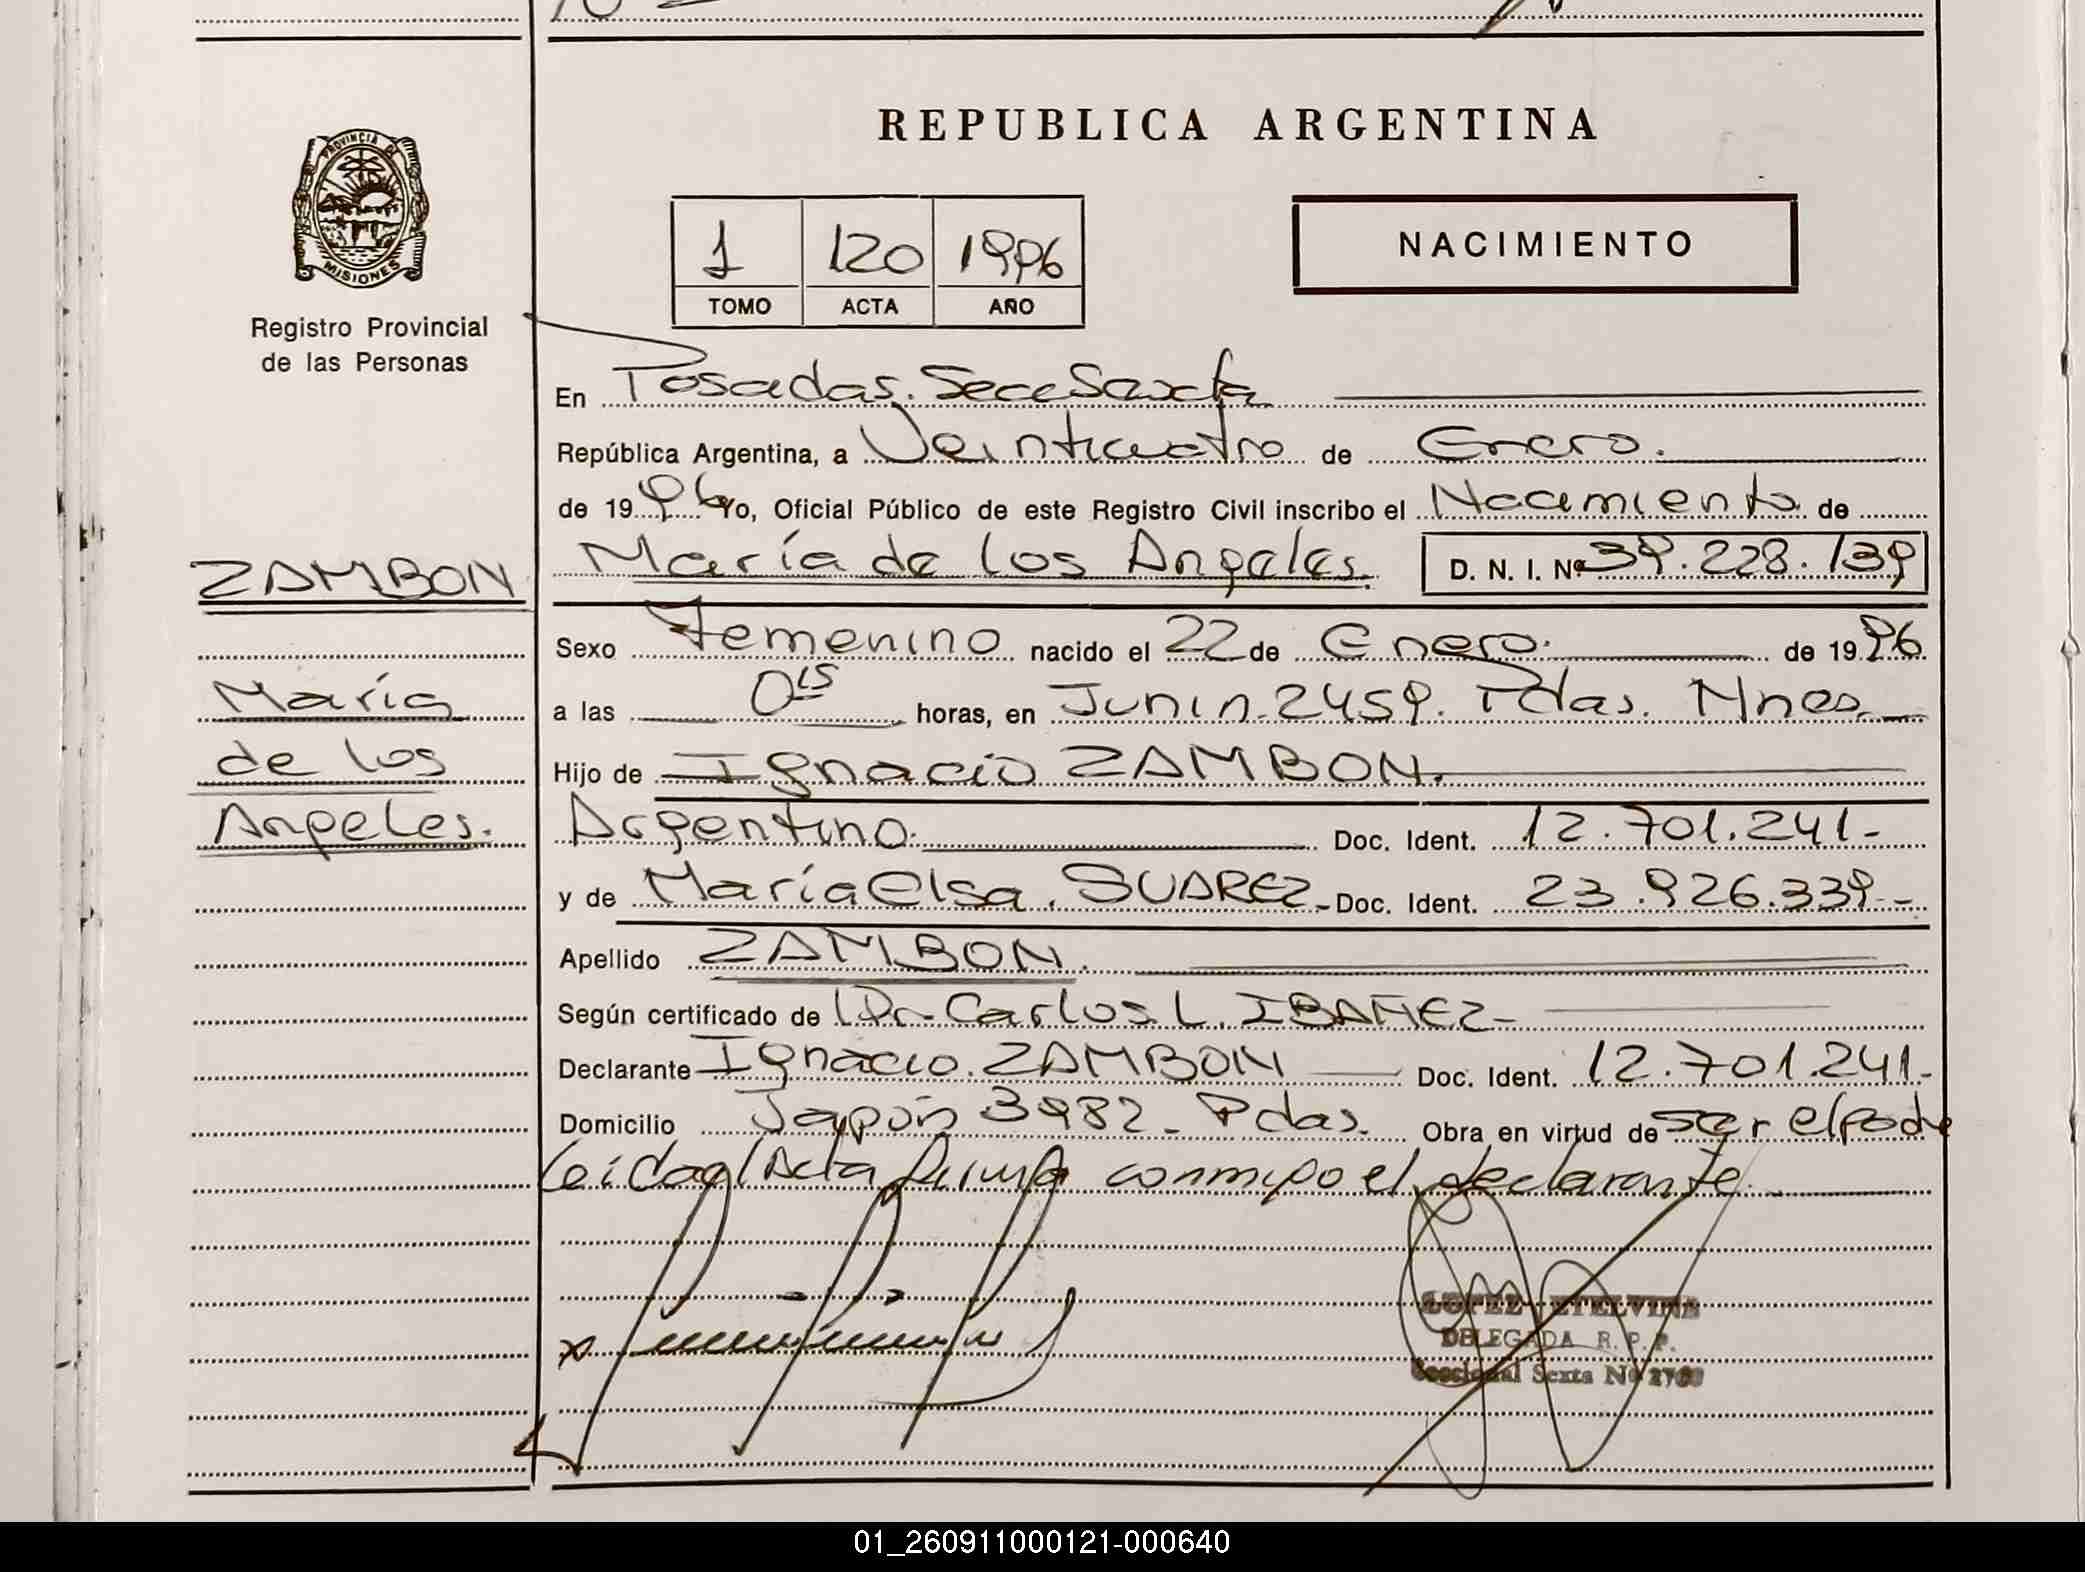 REPUBLICA ARGENTINA
PROVINCIA DE
MISIONES
Registro Provincial
de las Personas
1 120 1996
TOMO ACTA AÑO
NACIMIENTO
En Posadas. Secc Sexta
República Argentina, a Veinticuatro de Enero.
de 1996 Yo, Oficial Público de este Registro Civil inscribo el Nacimiento de
María de los Angeles. D. N. I. Nº 39.228.139
ZAMBON
María
de los
Angeles.
Sexo Femenino nacido el 22 de Enero. de 1996
a las 0 15 horas, en Junin 2459. Pdas. Mnes.
Hijo de Ignacio ZAMBON.
Argentino. Doc. Ident. 12.701.241-
y de María Elsa. SUAREZ- Doc. Ident. 23.926.339--
Apellido ZAMBON.
Según certificado de Dr. Carlos L. IBAÑEZ-
Declarante Ignacio ZAMBON Doc. Ident. 12.701.241-
Domicilio Japón 3982- Pdas. Obra en virtud de ser el padre
Leida el Acta firma conmigo el declarante.
x
LOPEZ ETELVINA
DELEGADA R. P. P.
Seccional Sexta Nº
01_260911000121-000640